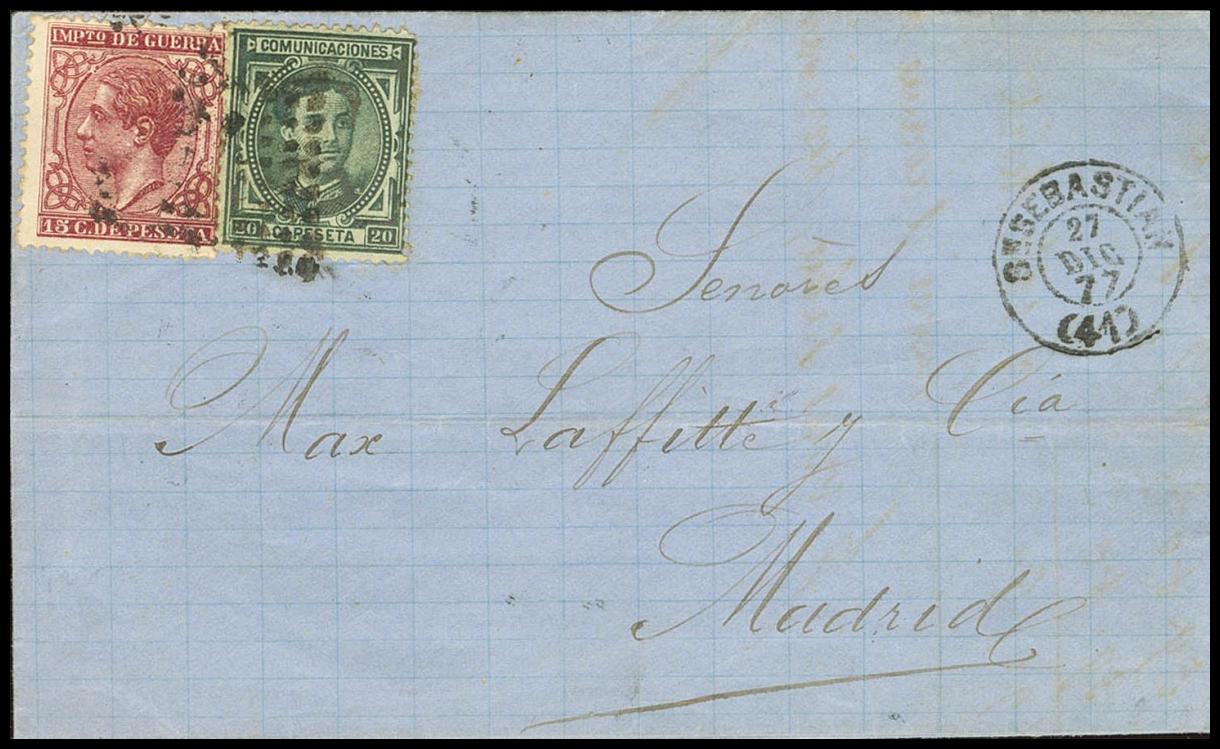 IMPTO DE GUERRA
15 C. DE PESETA
COMUNICACIONES
20 C. PESETA 20
SN SEBASTIAN
27
DIC
77
(41)
Señores
Max Laffitte y Cía
Madrid